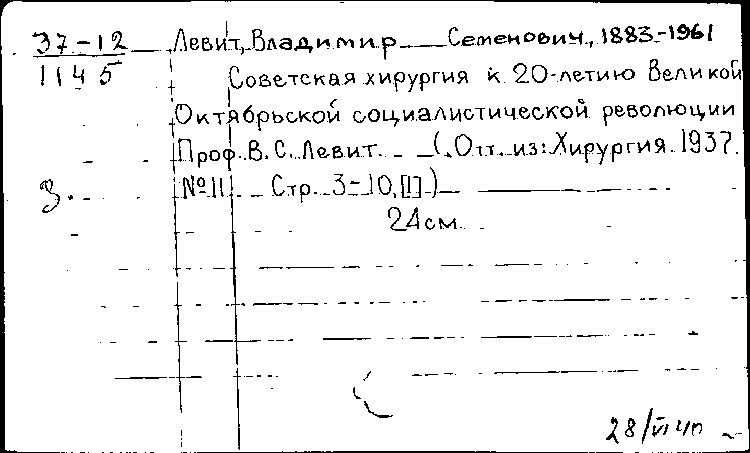 37-12 Левит, Владимир Семенович, 1883-1961
1145 Советская хирургия к 20-летию Великой
Октябрьской социалистической революции
Проф. В. С. Левит. (Отт. из: Хирургия. 1937.
З. № 11. Стр. 3-10, [1])
24 см.
28/VI 40